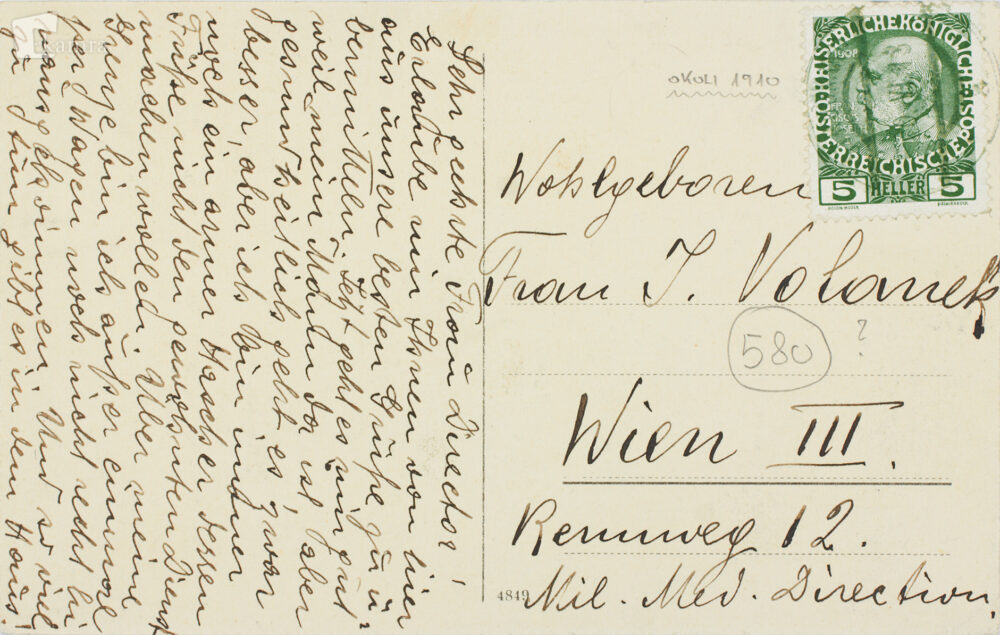 kamra
Sehr geehrte Frau Director!
Erlaube mir Ihnen von hier
aus unsere besten Grüße zu ü-
bermitteln. Jetzt geht es mir gut
weil mein Mann da ist, aber
gesundheitlich geht es zwar
besser, aber ich bin immer
noch ein armer Hascher dessen
Füße nicht den gewohnten Dienst
machen wollen. Über meine
Strenge bin ich außer einmal
per Wagen noch nicht recht hi-
nausgekommen. Und so viel
zu tun gibt es in dem Haus!
OKOLI 1910
KAISERLICHEKÖNIGLICHE
ÖSTERREICHISCHEPOST
1908
5 HELLER 5
Wohlgeboren
Frau J. Volanek
580
?
Wien III.
Rennweg 12.
Mil. Med. Direction.
4849